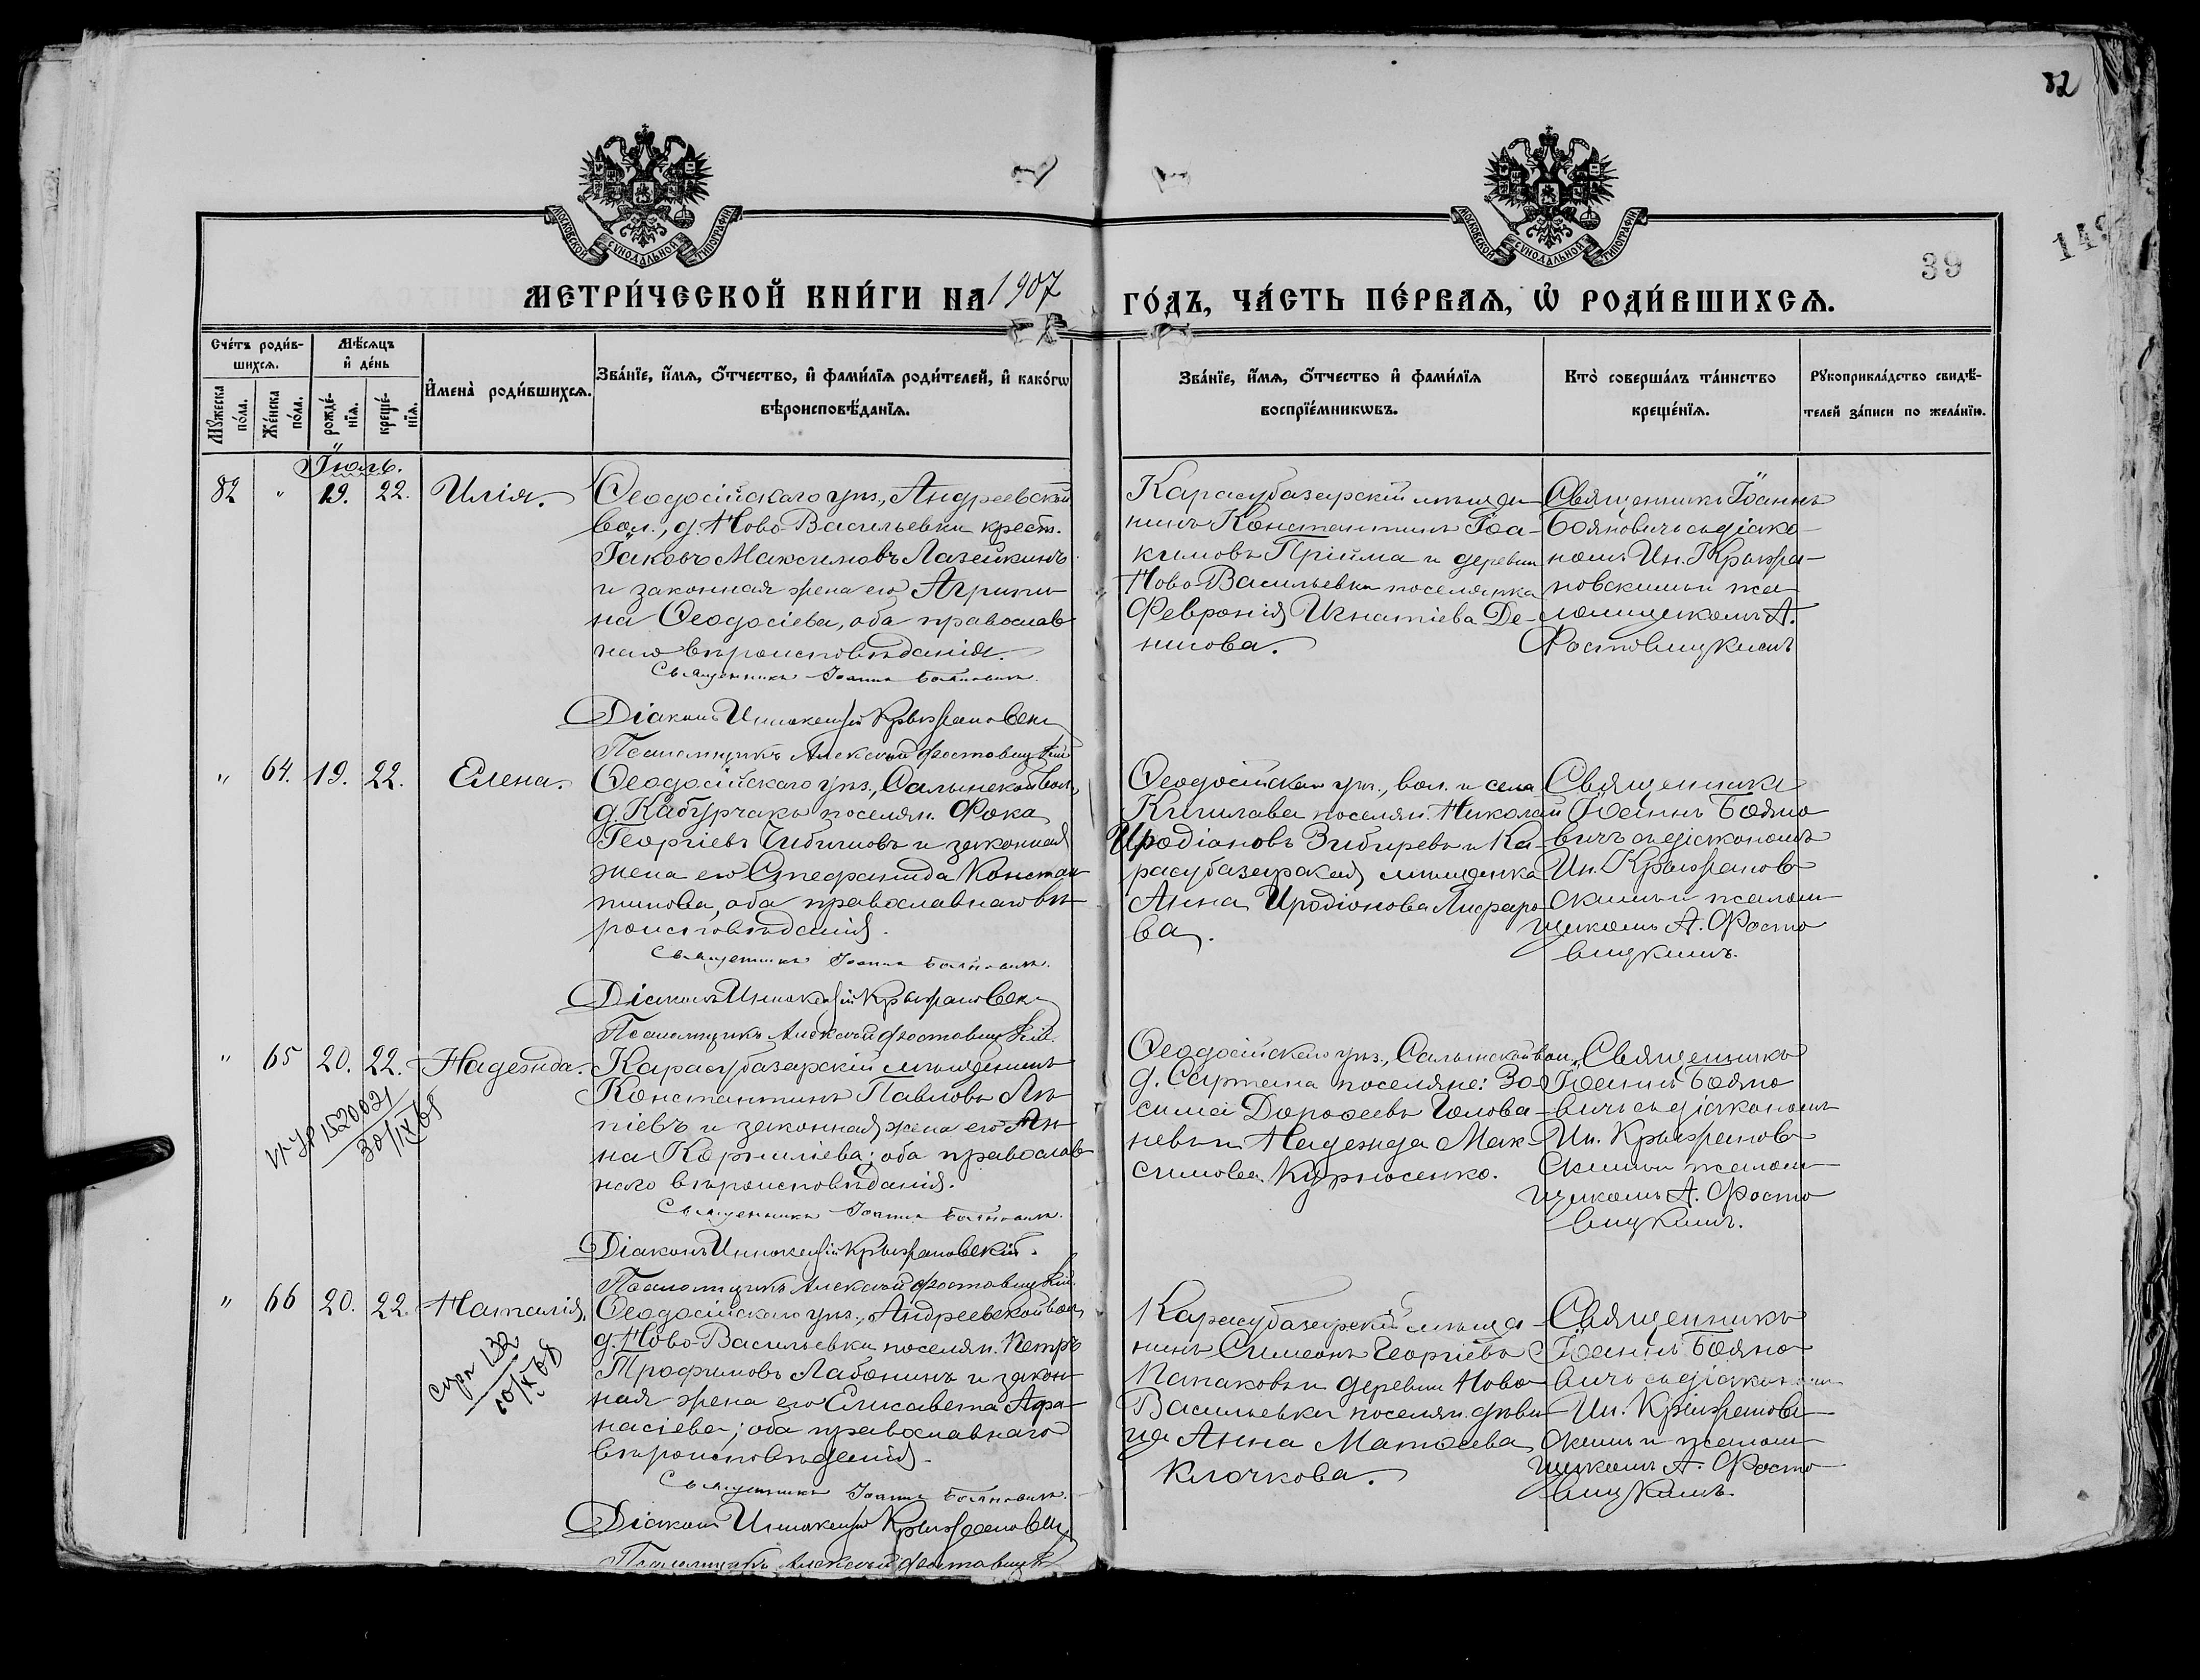 82
39
149
МОСКОВСКОЙ СУНОДАЛЬНОЙ ТИПОГРАФІИ
МОСКОВСКОЙ СУНОДАЛЬНОЙ ТИПОГРАФІИ
МЕТРИ́ЧЕСКОЙ КНИ́ГИ НА 1907
ГО́ДЪ, ЧА́СТЬ ПЕ́РВАѦ, Ѽ РОДИ́ВШИХСѦ.
Сче́тъ роди́в-
шихсѧ.
Мѣ́сѧцъ
и҆ де́нь
Мꙋ́жеска
по́ла.
Же́нска
по́ла.
рожде́-
нїѧ.
креще́-
нїѧ.
И҆мена̀ роди́вшихсѧ.
Зва́нїе, и҆́мѧ, ѻ҆́тчество, и҆ фами́лїѧ роди́телей, и҆ како́гѡ
вѣроисповѣ́данїѧ.
Зва́нїе, и҆́мѧ, ѻ҆́тчество и҆ фами́лїѧ
воспрїе́мникѡвъ.
Кто̀ соверша́лъ та́инство
креще́нїѧ.
Рꙋкоприкла́дство свидѣ́-
телей за́писи по жела́нїю.
Іюль.
82 " 19. 22. Илія.
Ѳеодосійскаго уѣз., Андреевской
вол., д. Ново-Васильевки крест.
Іаковъ Максимовъ Лазейкинъ
и законная жена его Агриппи-
на Ѳеодосіева, оба православ-
наго вѣроисповѣданія.
Священникъ Іоаннъ Бояновичъ.
Діаконъ Иннокентій Крыжановскій
Псаломщикъ Алексѣй Фостовицкій
Карасубазарскій мѣща-
нинъ Константинъ Іоа-
кимовъ Прійма и деревни
Ново-Васильевки поселянка
Февронія Игнатіева Де-
нисова.
Священникъ Іоаннъ
Бояновичъ съ діако-
номъ Ин. Крыжа-
новскимъ и пса-
ломщикомъ А.
Фостовицкимъ
" 64. 19. 22. Елена.
Ѳеодосійскаго уѣз., Салынской вол.,
д. Кабурчакъ поселян. Фока
Георгіевъ Чибичиовъ и законная
жена его Стефанида Констан-
тинова, оба православнаго вѣ-
роисповѣданія.
Священникъ Іоаннъ Бояновичъ.
Діаконъ Иннокентій Крыжановскій
Псаломщикъ Алексѣй Фостовицкій.
Ѳеодосійскаго уѣз., вол. и села
Кишлава поселян. Николай
Иродіановъ Зибиревъ и Ка-
расубазарская мѣщанка
Анна Иродіонова Лифаро-
ва.
Священникъ
Іоаннъ Бояно-
вичъ съ діакономъ
Ин. Крыжанов-
скимъ и псалом-
щикомъ А. Фосто-
вицкимъ.
" 65 20. 22. Надежда.
1520021
30/IX 68
Карасубазарскій мѣщанинъ
Константинъ Павловъ Лѣ-
піевъ и законная жена его Ан-
на Корниліева; оба православ-
наго вѣроисповѣданія.
Священникъ Іоаннъ Бояновичъ.
Діаконъ Иннокентій Крыжановскій.
Псаломщикъ Алексѣй Фостовицкій.
Ѳеодосійскаго уѣз., Салынской вол.,
д. Сартана поселяне: Зо-
сима Дороѳеевъ Голова-
невъ и Надежда Мак-
симова Курносенко.
Священникъ
Іоаннъ Бояно-
вичъ съ діакономъ
Ин. Крыжанов-
скимъ и псалом-
щикомъ А. Фосто-
вицкимъ.
" 66 20. 22. Наталія.
132
Ѳеодосійскаго уѣз., Андреевской вол.,
д. Ново-Васильевки поселян. Петръ
Трофимовъ Лабонинъ и закон-
ная жена его Елисавета Афа-
насіева; оба православнаго
вѣроисповѣданія.
Священникъ Іоаннъ Бояновичъ.
Діаконъ Иннокентій Крыжановскій
Псаломщикъ Алексѣй Фостовицкій
Карасубазарскій мѣща-
нинъ Симеонъ Георгіевъ
Папаковъ и деревни Ново-
Васильевки поселян. дѣви-
ца Анна Матѳеева
Клочкова.
Священникъ
Іоаннъ Бояно-
вичъ съ діакономъ
Ин. Крыжанов-
скимъ и псалом-
щикомъ А. Фосто-
вицкимъ.